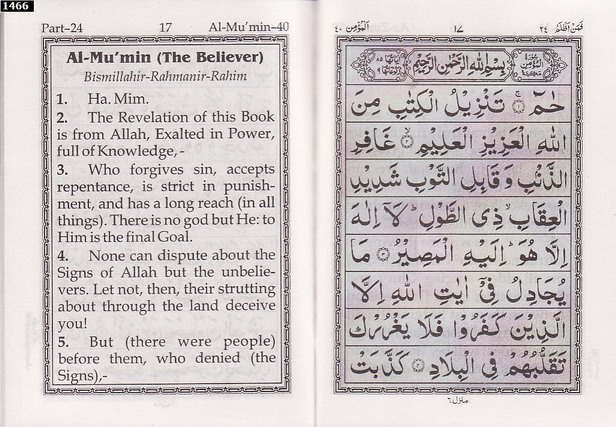 1466
Part-24 17 Al-Mu'min-40
Al-Mu'min (The Believer)
Bismillahir-Rahmanir-Rahim
1. Ha. Mim.
2. The Revelation of this Book
is from Allah, Exalted in Power,
full of Knowledge,-
3. Who forgives sin, accepts
repentance, is strict in punish-
ment, and has a long reach (in all
things). There is no god but He: to
Him is the final Goal.
4. None can dispute about the
Signs of Allah but the unbelie-
vers. Let not, then, their strutting
about through the land deceive
you!
5. But (there were people)
before them, who denied (the
Signs),-
فَمَنْ اَظْلَمُ ٢٤ ١٧ اَلْمُؤْمِن ٤٠
بِسْمِ اللهِ الرَّحْمٰنِ الرَّحِيْمِ
حٰمٓ ۚ ١ تَنْزِيْلُ الْكِتٰبِ مِنَ
اللهِ الْعَزِيْزِ الْعَلِيْمِ ۙ ٢ غَافِرِ
الذَّنْۢبِ وَقَابِلِ التَّوْبِ شَدِيْدِ
الْعِقَابِ ۙ ذِى الطَّوْلِ ؕ لَاۤ اِلٰهَ
اِلَّا هُوَ ؕ اِلَيْهِ الْمَصِيْرُ ٣ مَا
يُجَادِلُ فِىْۤ اٰيٰتِ اللهِ اِلَّا
الَّذِيْنَ كَفَرُوْا فَلَا يَغْرُرْكَ
تَقَلُّبُهُمْ فِى الْبِلَادِ ٤ كَذَّبَتْ
منزل ٦